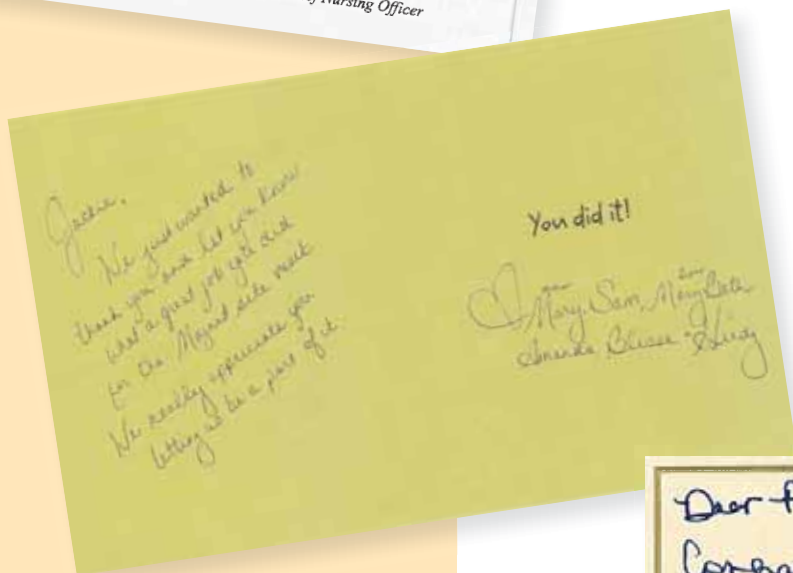 Nursing Officer
Jackie,
We just wanted to
thank you and let you know
what a great job you did
for the Magnet site visit
We really appreciate you
letting us be a part of it.
You did it!
Mary Sam, Mary Beth
Amanda
Dear